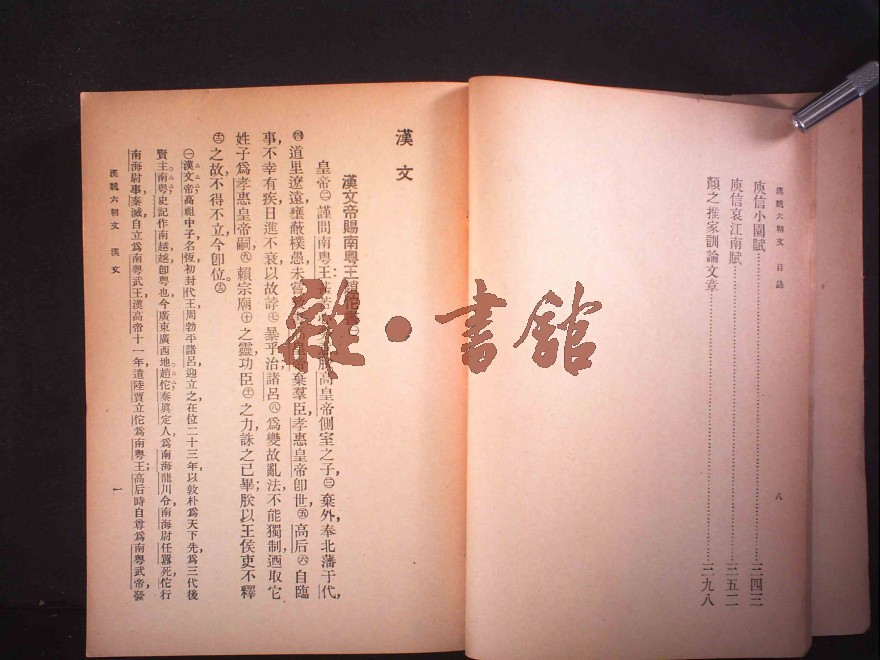 漢魏六朝文 目錄
八
庾信小園賦……三四三
庾信哀江南賦……三五二
顏之推家訓論文章……三九八
漢文
漢文帝賜南粵王
皇帝㊁謹問南粵王朕高皇帝側室之子㊂棄外奉北藩于代
㊃道里遼遠壅蔽樸愚未嘗皇帝棄羣臣孝惠皇帝卽世㊄高后㊅自臨
事不幸有疾日進不衰以故誖㊆暴乎治諸呂㊇爲變故亂法不能獨制迺取它
姓子爲孝惠皇帝嗣㊈賴宗廟㊉之靈功臣之力誅之已畢朕以王侯吏不釋
之故不得不立今卽位。
㊀漢文帝高祖中子名恆初封代王周勃平諸呂迎立之在位二十三年以敦朴爲天下先爲三代後
賢主。南粵史記作南越越卽粵也今廣東廣西地。趙佗秦眞定人爲南海龍川令南海尉任囂死佗行
南海尉事秦滅自立爲南粵武王漢高帝十一年遣陸賈立佗爲南粵王高后時自尊爲南粵武帝發
漢魏六朝文 漢文
一
雜·書館